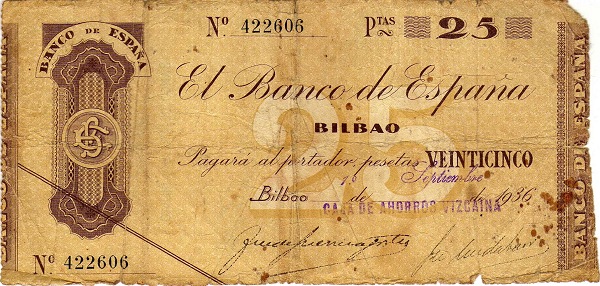 Nº 422606 PTAS 25
BANCO DE ESPAÑA
El Banco de España
BILBAO
25
Pagará al portador, pesetas VEINTICINCO
Septiembre
Bilbao de de 1936
CAJA DE AHORROS VIZCAINA
Nº 422606
BANCO DE ESPAÑA